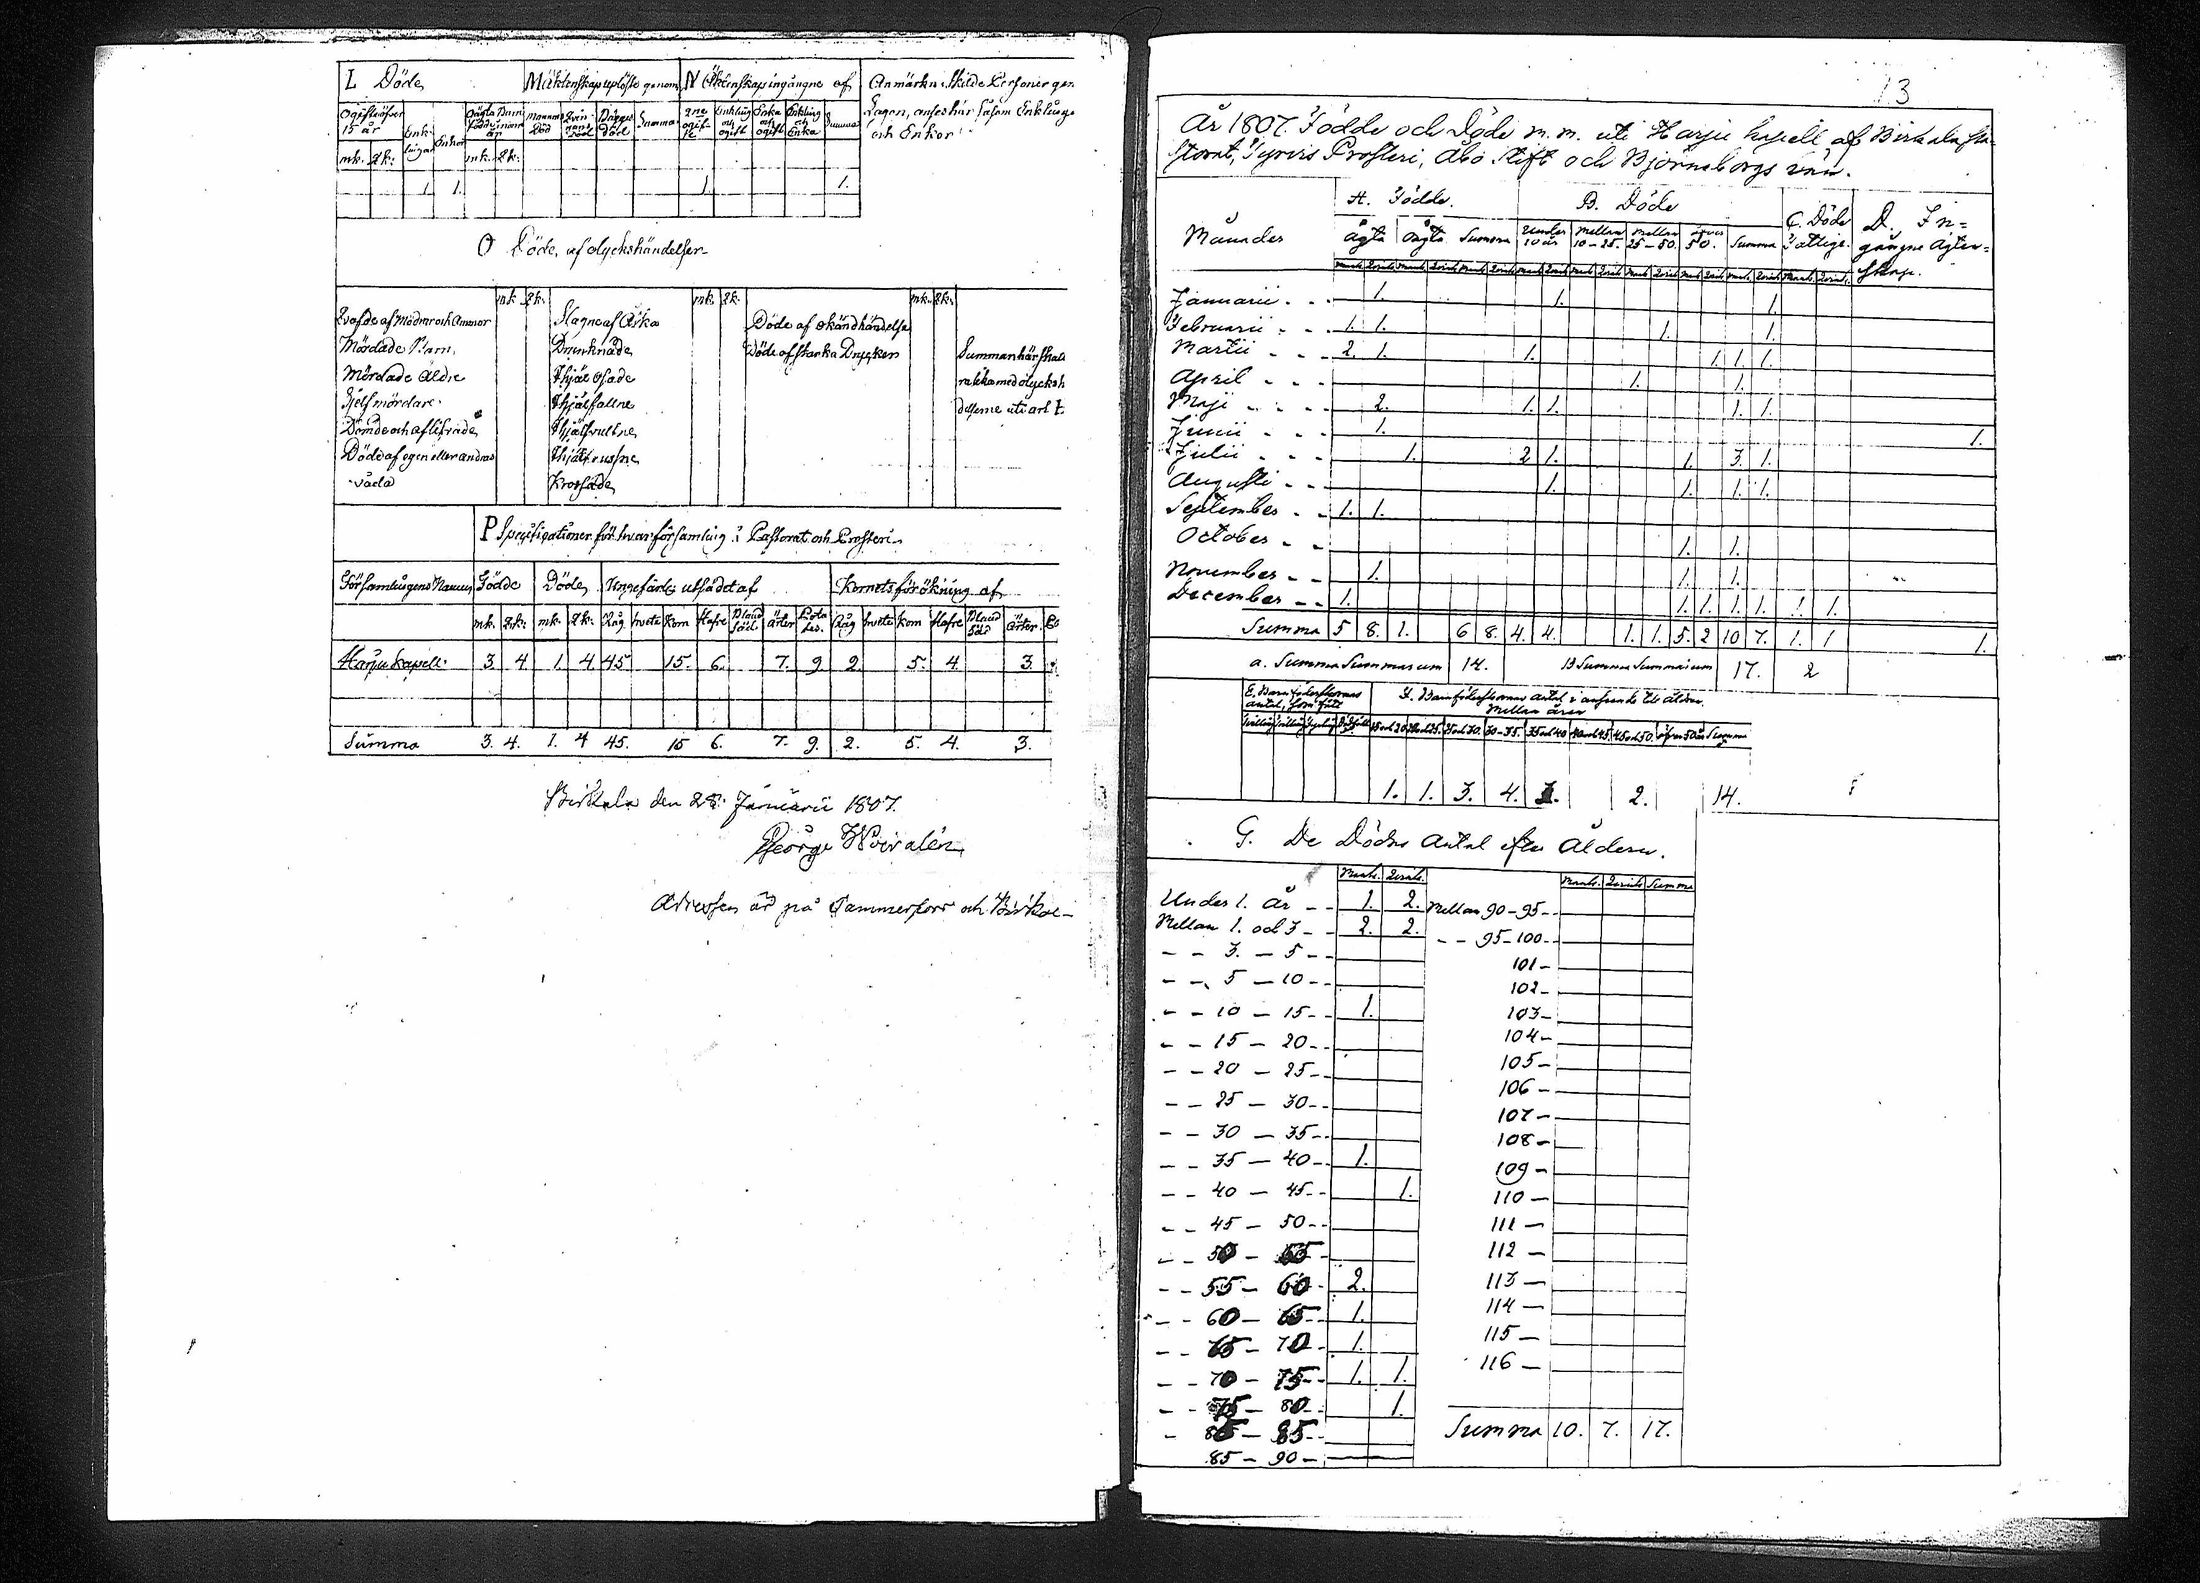 L Döde
Mäktenskap uplöste genom
N Äktenskap ingångne af
Anmärkn. Skilde Personer gen
Ogifte öfver 15 år
Enk-lingar
Enkor
Oägta Barn födde inom år
Manens Död
Qvin-nans död
Bägges död
Summa
gne ogif-te
Enkling och ogift
Enka och ogift
Enkling och Enka
Summa
Lagen, anses här såsom Enklinga
och Enkor
mk. qk: mk. qk:
1 1. 1 1.
O Döde af olyckshändelser
mk. qk. mk. qk. mk. qk.
Qvafde af Mödrar och Ammor Slagne af Åska Döde af okänd händelse
Mördade Barn Drunknade Döde af starka Drycker Summan här skal
Mördade Äldre Ihjäl osade
Sjelfmördare Ihjälfallne delserne uti art.
Dömde och aflifvade Ihjälfrusne
Döde af egen eller andras
våda Krossade
P Specifikationer för hvar församling i Pastorat och Prosteri
Församlingens Namn Födde Döde Ungefärlig utsädet af Kornets förökning af
mk. qk: mk. qk: Råg hvete Korn Hafre Bland säd Ärter Råg hvete Korn Hafre Bland säd Ärter
Harju Kapell. 3. 4 1. 4 45. 15. 6. 7. 9. 2. 5. 4. 3.
Summa 3. 4. 1. 4 45. 15 6. 7. 9. 2. 5. 4. 3.
Birkala den 28. Januarii 1807.
George Woivalén
Adressen är på Tammerfors och Birka-
13
År 1807. Födde och Döde m. m. uti Harju kapell af Birkala Pa-
storat, Tyrvis Prosteri, Åbo Stift och Björneborgs Län.
Månader
A. Födde.
B. Döde
C. Döde Fattige.
D. In-gångne Ägten-skap.
Ägta Oägta Summa Under 10 år Mellan 10-25. Mellan 25-50. öfver 50. Summa
Januarii - - 1. 1. 1.
Februarii - - 1. 1. 1. 1.
Martii - - - 2. 1. 1. 1. 1. 1.
April - - - 1. 1.
Maji - - - 2. 1. 1. 1. 1.
Junii - - - 1. 1.
Julii - - - 1. 2 1. 1. 3. 1.
Augusti - - 1. 1. 1. 1.
September - - 1. 1.
October - - 1. 1.
November - - 1. 1. 1.
December - - 1. 1. 1. 1. 1. 1. 1.
Summa 5 8. 1. 6 8. 4. 4. 1. 1. 5. 2 10 7. 1. 1 1.
a. Summa Summarum 14. B Summa Summarum 17. 2
E. Barnföderskornas antal, som födt
F. Barnföderskornas antal i anseende till åldren.
Mellan åren
15 och 20 20 och 25. 25 och 30. 30-35. 35 och 40 40 och 45. 45 och 50. öfver 50 år Summa
1. 1. 3. 4. 3. 2. 14.
G. De Dödas Antal efter Åldern.
Mank. Qvink. Mank. Qvink. Summa
Under 1. år - - 1. 2. Mellan 90-95 - -
Mellan 1. och 3 - - 2. 2. - - 95-100 - -
- - 3. - 5 - - 101 -
- - 5 - 10 - - 102 -
- - 10 - 15 - - 1. 103 -
- - 15 - 20 - - 104 -
- - 20 - 25 - - 105 -
- - 25 - 30 - - 106 -
- - 30 - 35 - - 107 -
- - 35 - 40 - - 1. 108 -
- - 40 - 45 - - 1. 109 -
- - 45 - 50 - - 110 -
- - 50 - 55 - 111 -
- - 55 - 60 - 2. 112 -
- - 60 - 65 - 1. 113 -
- - 65 - 70 - 1. 114 -
- - 70 - 75 - - 1. 1. 115 -
- - 75 - 80 - - 1. 116 -
- 80 - 85 - - Summa 10. 7. 17.
85 - 90 -